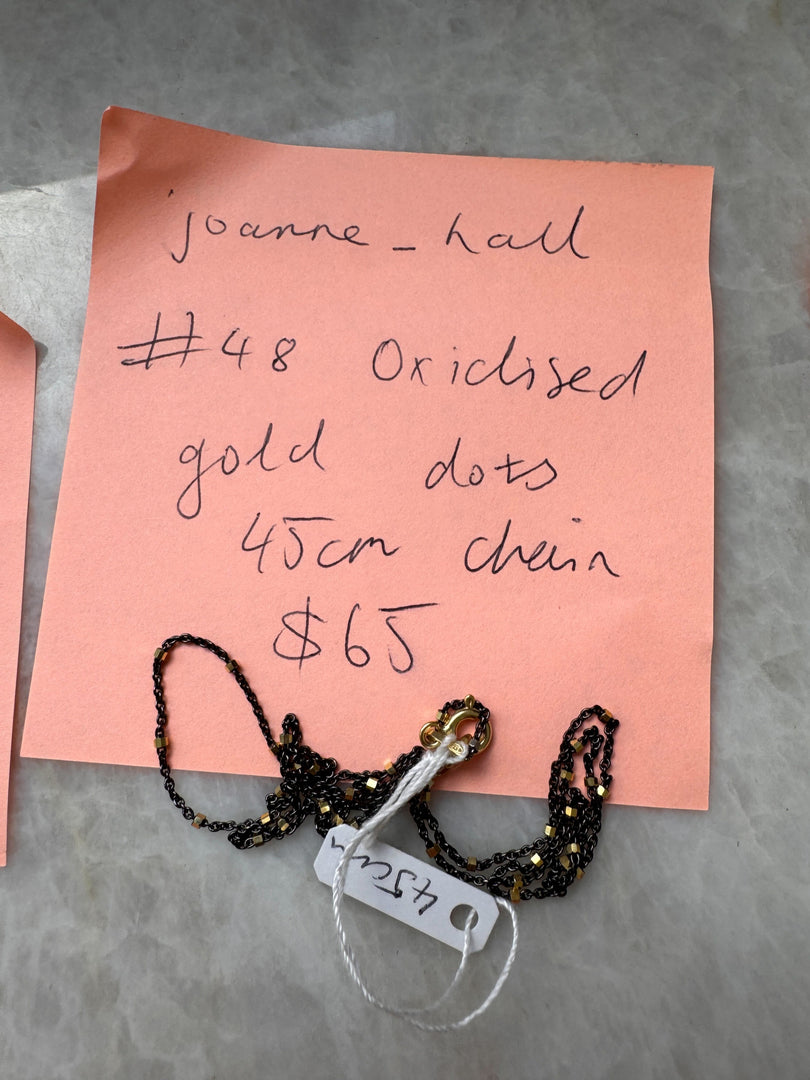 joanne_hall
#48 Oxidised
gold dots
45cm chain
$65
45cm